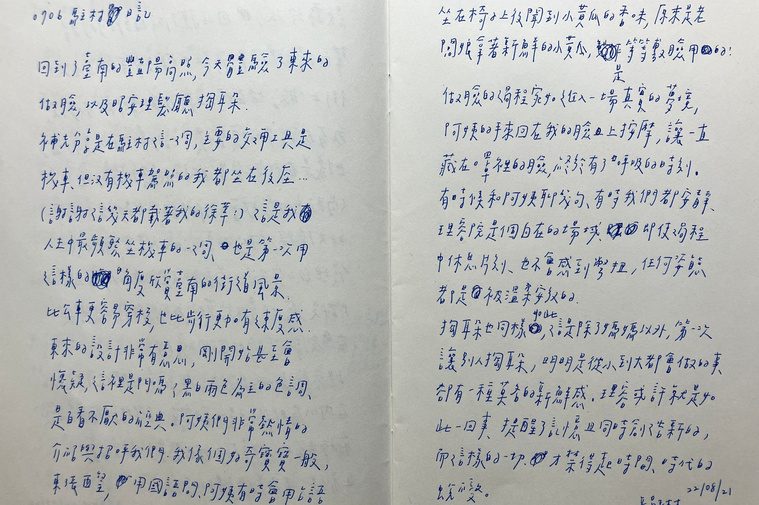 0906 駐村日記
回到了臺南的豔陽高照,今天體驗了東來的
做臉,以及昭安理髮廳 掏耳朵.
補充分享是在駐村這一週,主要的交通工具是
機車,但沒有機車駕照的我都坐在後座…
(謝謝這幾天都載著我的徐草:)) 這是我
人生中最頻繁坐機車的一週,也是第一次用
這樣的角度欣賞臺南的街道風景.
比公車更容易穿梭,也比步行更加有速度感.
東來的設計非常有意思,剛開始甚至會
懷疑,這裡是門嗎?黑白兩色為主的色調,
是百看不厭的經典.阿姨們非常熱情的
介紹與招呼我們.我像個好奇寶寶一般,
東張西望,用國語問,阿姨有時會用台語
坐在椅子上後聞到小黃瓜的香味,原來是老
闆娘拿著新鮮的小黃瓜,是等等敷臉用的!
做臉的過程宛如進入一場真實的夢境,
阿姨的手來回在我的臉皿上按摩,讓一直
藏在口罩裡的臉,終於有了呼吸的時刻.
有時候和阿姨聊幾句,有時我們都安靜.
理容院是個自在的場域,即使過程
中休息片刻,也不會感到彆扭,任何姿態
都是被溫柔安放的.
掏耳朵也同樣如此,這是除了媽媽以外,第一次
讓別人掏耳朵,明明是從小到大都會做的事
卻有一種莫名的新鮮感.理容或許就是如
此一回事,提醒了記憶且同時創造新的,
而這樣的一切,才禁得起時間、時代的
蛻變。
22/08/21